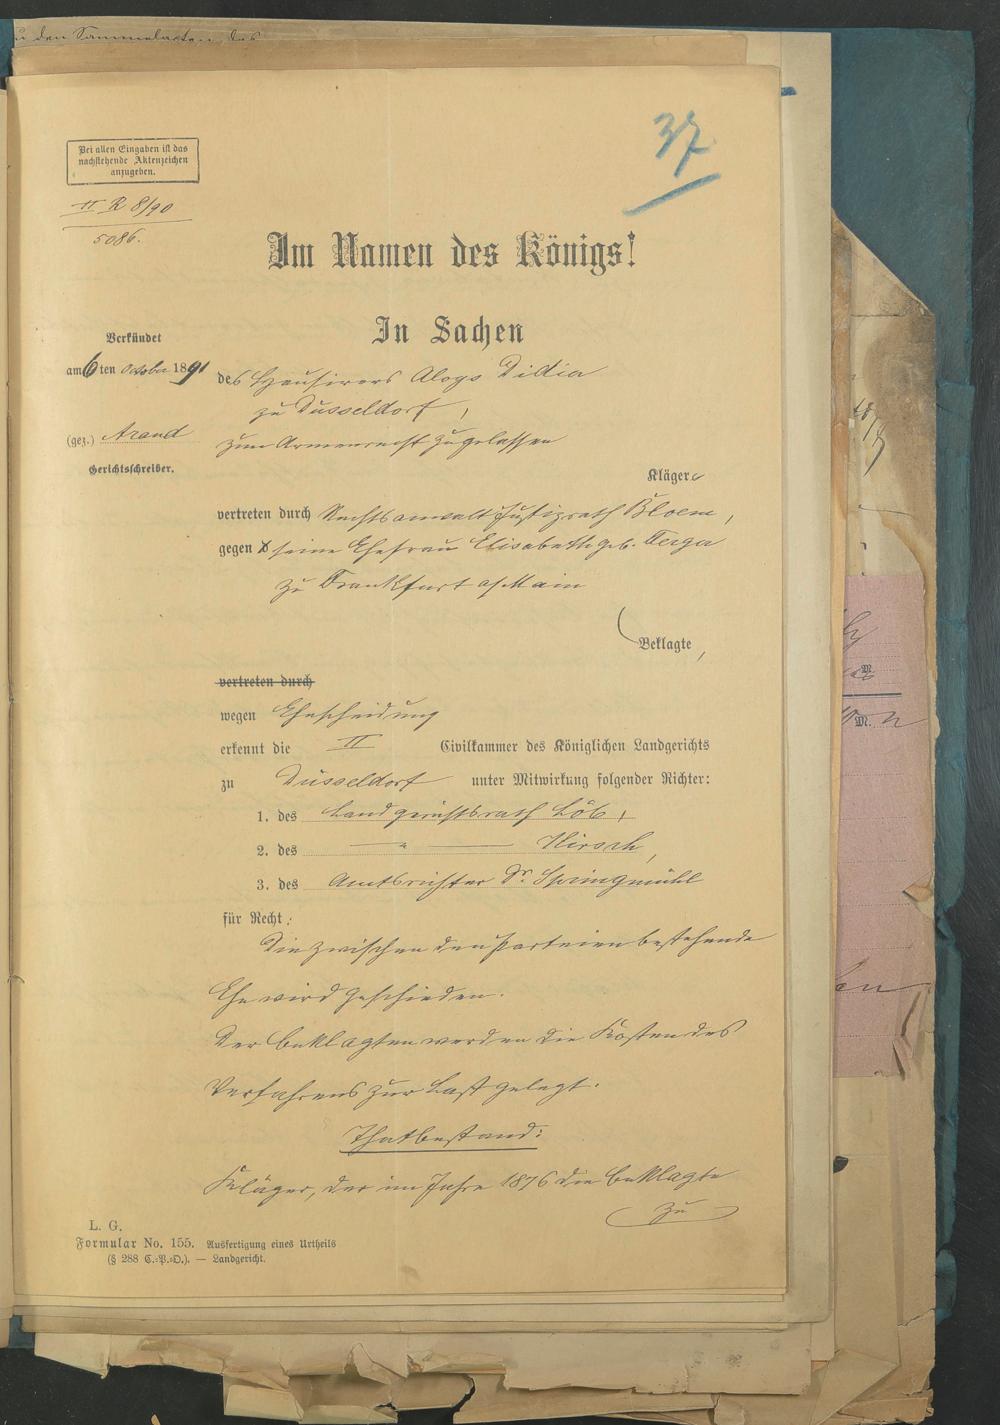 zu den Sammelakten des
37
Bei allen Eingaben ist das
nachstehende Aktenzeichen
anzugeben.
II R 8/90
5086.
Im Namen des Königs!
In Sachen
Verkündet
am 6ten October 1891
(gez.) Arand
Gerichtsschreiber.
des Hausirers Aloys Didia
zu Düsseldorf,
zum Armenrecht zugelassen
Klägers
vertreten durch Rechtsanwalt Justizrath Bloem,
gegen seine Ehefrau Elisabeth geb. Terga
zu Frankfurt a/Main
Beklagte,
vertreten durch
wegen Ehescheidung
erkennt die II Civilkammer des Königlichen Landgerichts
zu Düsseldorf unter Mitwirkung folgender Richter:
1. des Landgerichtsrath Löb,
2. des — " — Hirsch,
3. des Amtsrichter Dr. Springmühl
für Recht:
Die zwischen den Parteien bestehende
Ehe wird geschieden.
Der Beklagten werden die Kosten des
Verfahrens zur Last gelegt.
Thatbestand:
Kläger, der im Jahre 1876 die Beklagte
zu
L. G.
Formular No. 155. Ausfertigung eines Urtheils
(§ 288 C.-P.-O.). — Landgericht.
M.
M.